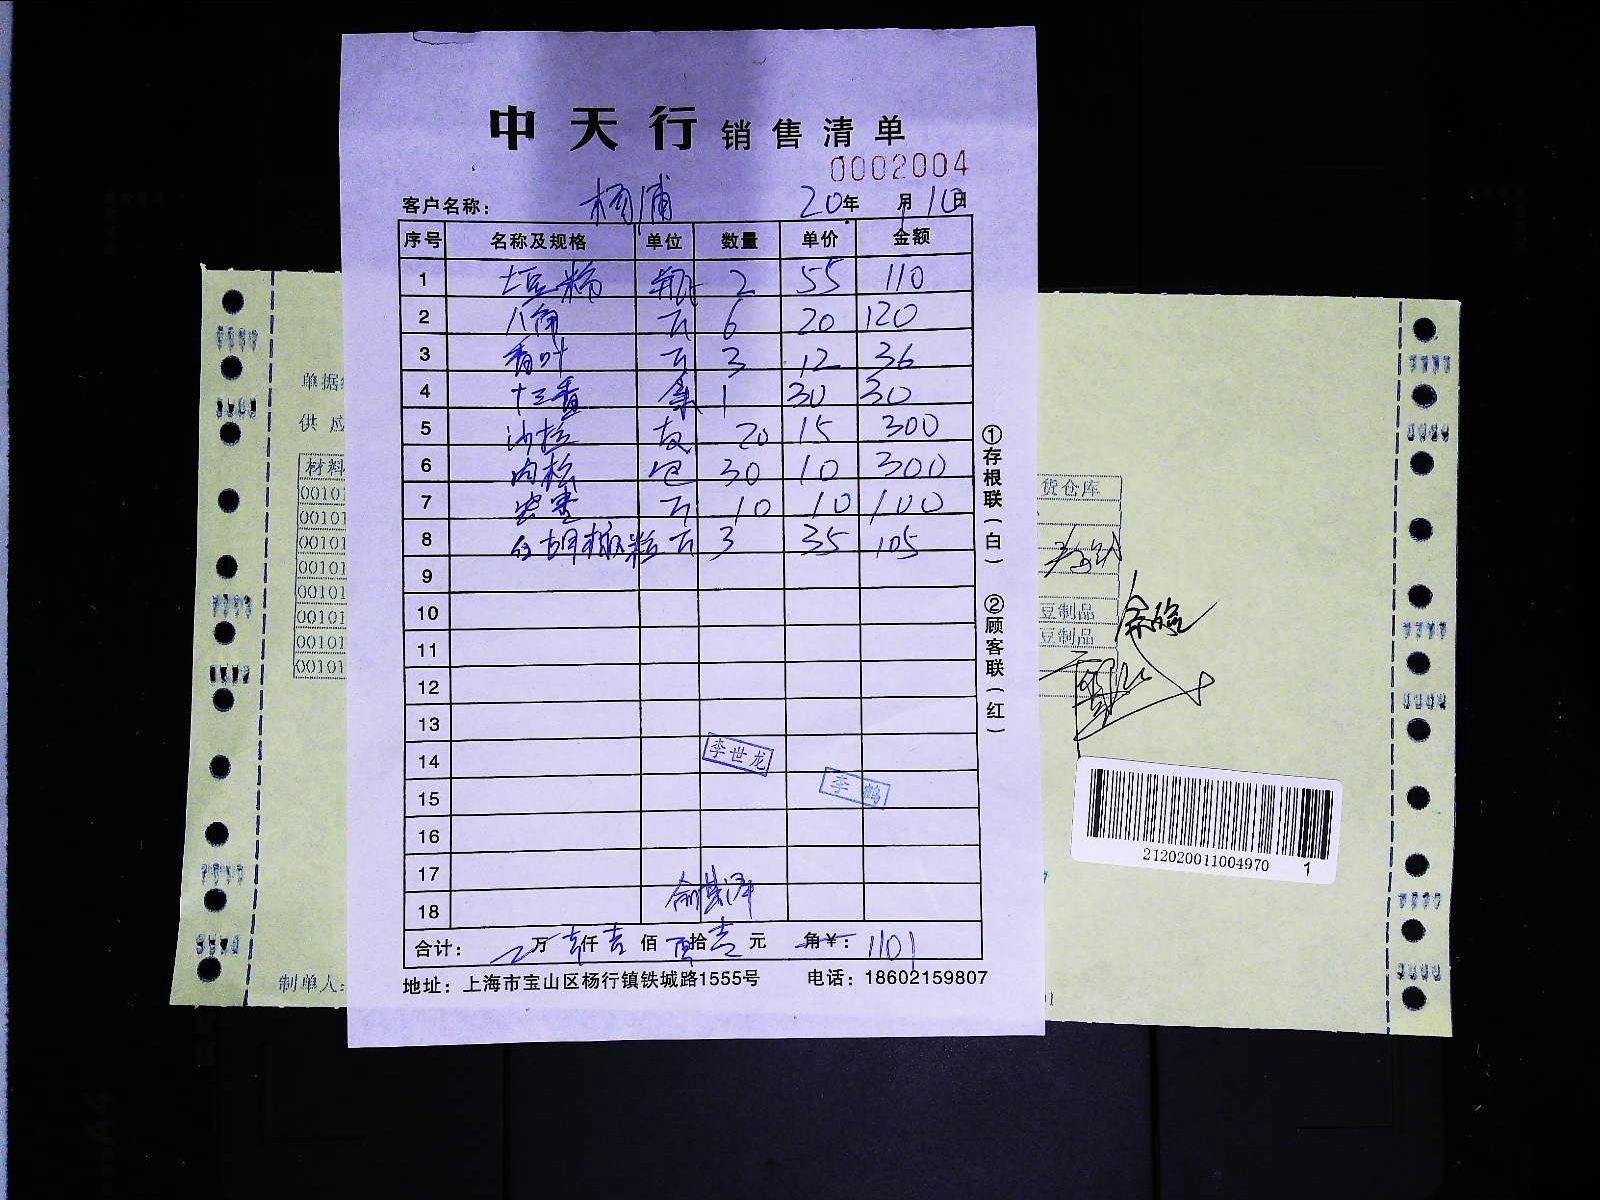 中天行销售清单
0002004
客户名称: 杨浦 20年 1月10日
序号 名称及规格 单位 数量 单价 金额
1 土豆粉 瓶 2 55 110
2 八角 斤 6 20 120
3 香叶 斤 3 12 36
4 十三香 条 1 30 30
5 沙拉 20 15 300
6 肉松 包 30 10 300
7 斤 10 10 100
8 白胡椒粉 斤 3 35 105
9
10
11
12
13
14 李世龙
15 李鹤
16
17
18
合计: 万 壹仟 壹佰 拾 壹元 角 ¥: 1101
地址: 上海市宝山区杨行镇铁城路1555号 电话: 18602159807
①存根联(白) ②顾客联(红)
单据
供应
材料
00101
00101
00101
00101
00101
00101
00101
00101
制单人:
货仓库
豆制品
豆制品
212020011004970 1